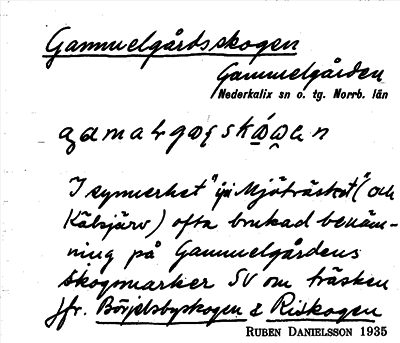 Gammelgårdsskogen
Gammelgården
Nederkalix sn o. tg. Norrb. län
I synnerhet i "Mjöträsket" (och
Kälsjärv) ofta brukad benäm-
ning på Gammelgårdens
skogsmarker SV om träsken
Jfr. Börjelsbyskogen & Riskogen
RUBEN DANIELSSON 1935